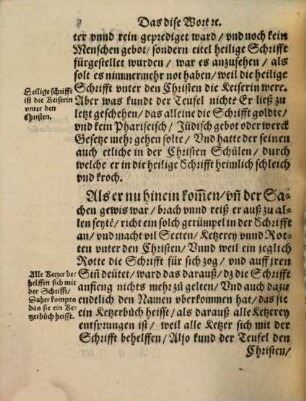 Das dise Wort ꝛc.
ter vnnd rein geprediget ward / vnd noch kein
Menschen gebot / sondern eitel heilige Schrifft
fürgestellet wurden / war es anzusehen / als
solt es nimmermehr not haben / weil die heilige
Schrifft vnter den Christen die Keiserin were.
Heilige schrifft
ist die Keiserin
vnter den
Christen.
Aber was kundt der Teufel nichte Er ließ zu
letzt geschehen / das alleine die Schrifft goldte /
vnd kein Phariseisch / Jüdisch gebot oder werck
Gesetze mehr gehen solte / Vnd hatte der seinen
auch etliche in der Christen Schülen / durch
welche er in die heilige Schrifft heimlich schleich
vnd kroch.
Als er nu hinein kom̃en / vn̄ der Sa-
chen gewis war / brach vnnd reiß er auß zu al-
len seytē / richt ein solch gerümpel in der Schrifft
an / vnd macht vil Secten / Ketzerey vnnd Rot-
ten vnter den Christen / Vnnd weil ein jeglich
Rotte die Schrifft für sich zog / vnd auff jren
Sin deütet / ward das darauß / dz die Schrifft
anfieng nichts mehr zu gelten / Vnd auch dazu
endtlich den Namen vberkommen hat / das sie
ein Ketzerbüch heisst / als darauß alle Ketzerey
entsprungen ist / weil alle Ketzer sich mit der
Schrifft behelffen / Also kund der Teufel den
Alle Ketzer be-
helffen sich mit
der Schrifft /
Daher kompts
das sie ein Ke-
tzerbüch heisst.
Christen /